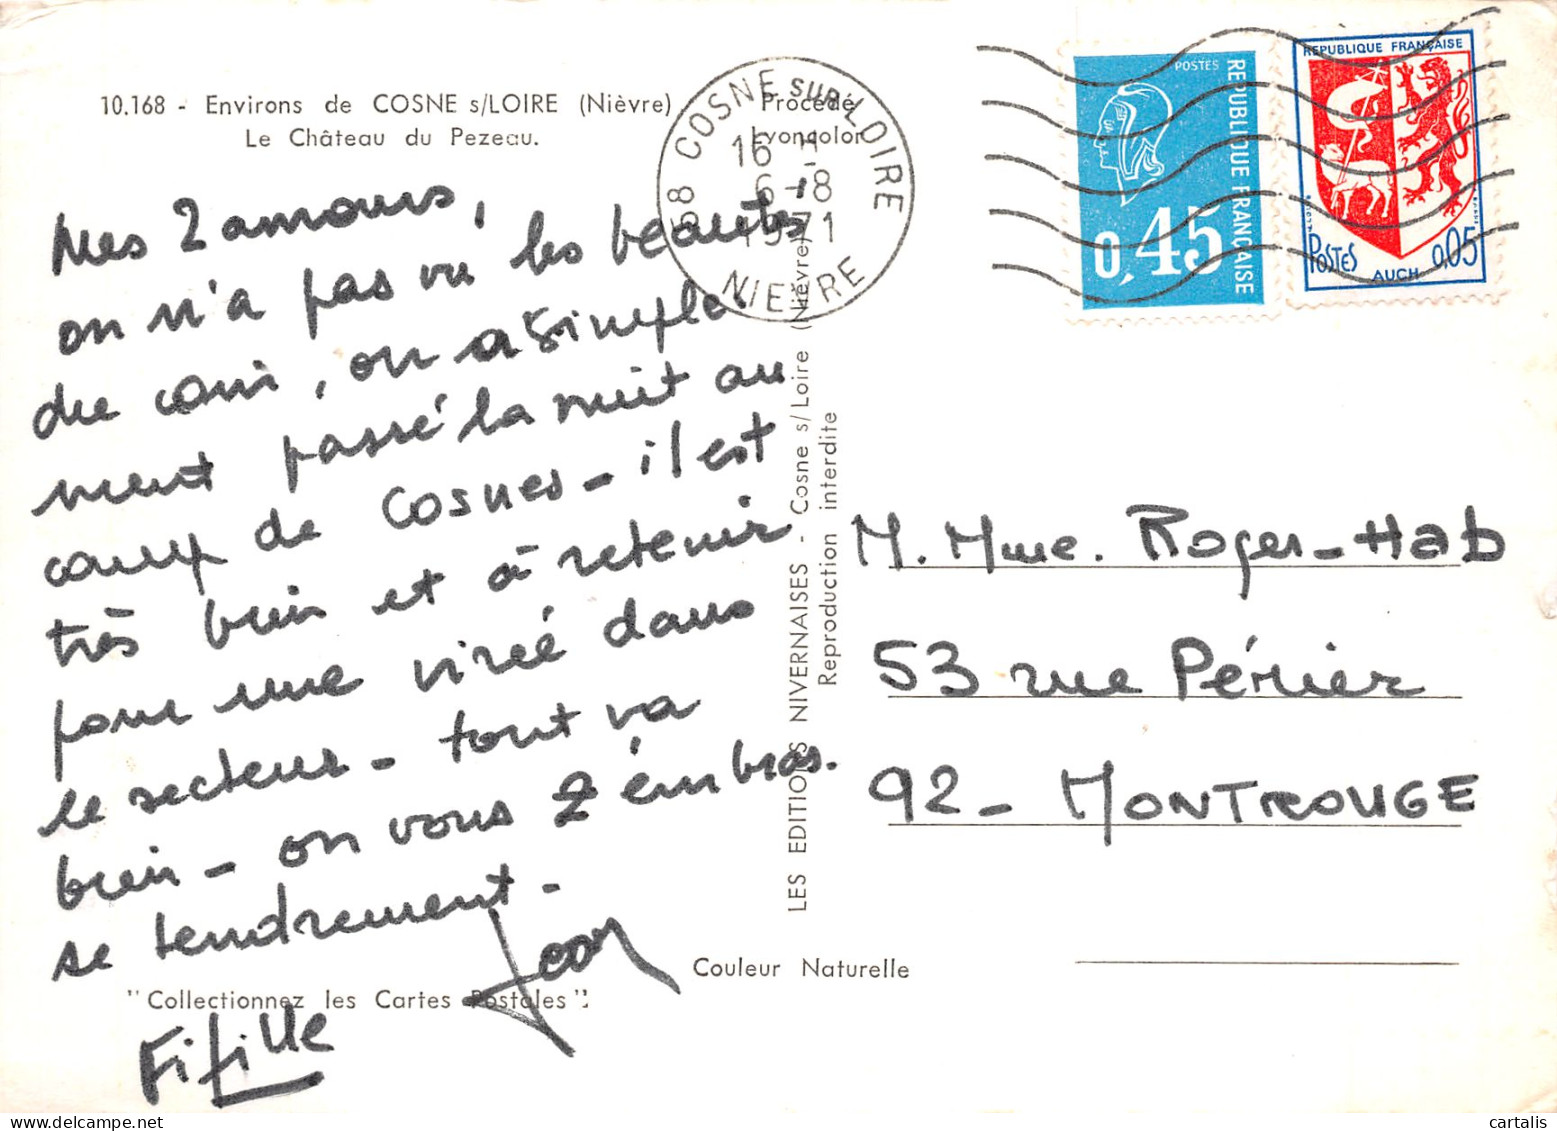 10.168 - Environs de COSNE s/LOIRE (Nièvre)
Le Château du Pezeau.
Procédé
Lyoncolor
58 COSNE SUR LOIRE
16 H
6-8
1971
NIEVRE
POSTES
REPUBLIQUE FRANÇAISE
0,45
REPUBLIQUE FRANÇAISE
POSTES
AUCH
0,05
Mes 2 amours,
on n'a pas vu les beautés
du coin, on a simple
ment passé la nuit au
camp de Cosnes - il est
très bien et à retenir
pour une virée dans
le secteur - tout va
bien - on vous 2 embras.
se tendrement -
Jean
Fifille
"Collectionnez les Cartes Postales"
LES EDITIONS NIVERNAISES - Cosne s/Loire (Nièvre)
Reproduction interdite
Couleur Naturelle
M. Mme. Roger-Hab
53 rue Périer
92 - MONTROUGE
cartalis